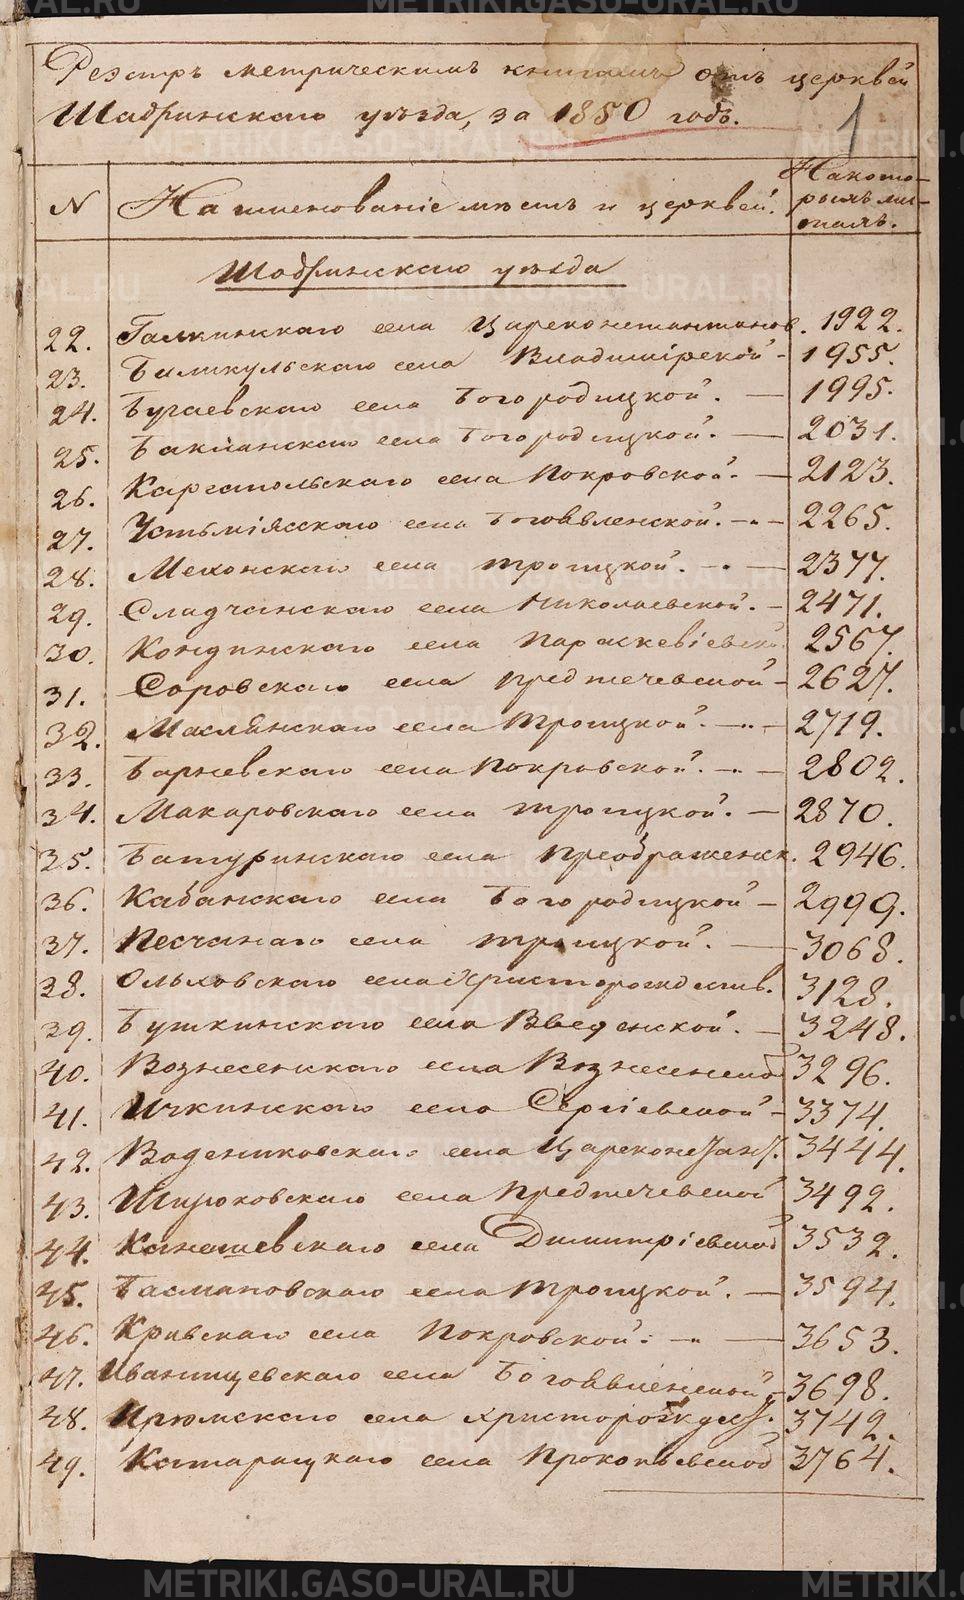 METRIKI.GASO-URAL.RU
Реэстръ метрическимъ книгамъ отъ церквей
Шадринскаго уѣзда, за 1850 годъ.
1
N
На именованіе мѣстъ и церквей.
На кото-
рыхъ ли-
стахъ.
Шадринскаго уѣзда
22. Галкинскаго села Цареконстантинов. 1922.
23. Биликульскаго села Владимірской - 1955.
24. Бугаевскаго села Богородицкой. — 1995.
25. Бакланскаго села Богородицкой. — 2031.
26. Карачельскаго села Покровской. — 2123.
27. Устьміясскаго села Богоявленской. - 2265.
28. Мехонскаго села Троицкой. — 2377.
29. Сладчанскаго села Николаевской. - 2471.
30. Кондинскаго села Параскевіевск. 2567.
31. Соровскаго села Предтечевской - 2627.
32. Маслянскаго села Троицкой. — 2719.
33. Барневскаго села Покровской. — 2802.
34. Макаровскаго села Троицкой. — 2870.
35. Батуринскаго села Преображенск. 2946.
36. Кабанскаго села Богородицкой - 2999.
37. Песчанаго села Троицкой. — 3068.
38. Ольховскаго села Христорождеств. 3128.
39. Буткинскаго села Введенской. — 3248.
40. Вознесенскаго села Вознесенской 3296.
41. Ичкинскаго села Сергіевской - 3374.
42. Водениковскаго села Цареконстант. 3444.
43. Широковскаго села Предтечевской 3492.
44. Канашевскаго села Димитріевской 3532.
45. Басмановскаго села Троицкой. — 3594.
46. Кривскаго села Покровской. — 3653.
47. Иванищевскаго села Богоявленской - 3698.
48. Крюмскаго села Христорождест. 3742.
49. Катарацкаго села Прокопьевской 3764.
METRIKI.GASO-URAL.RU